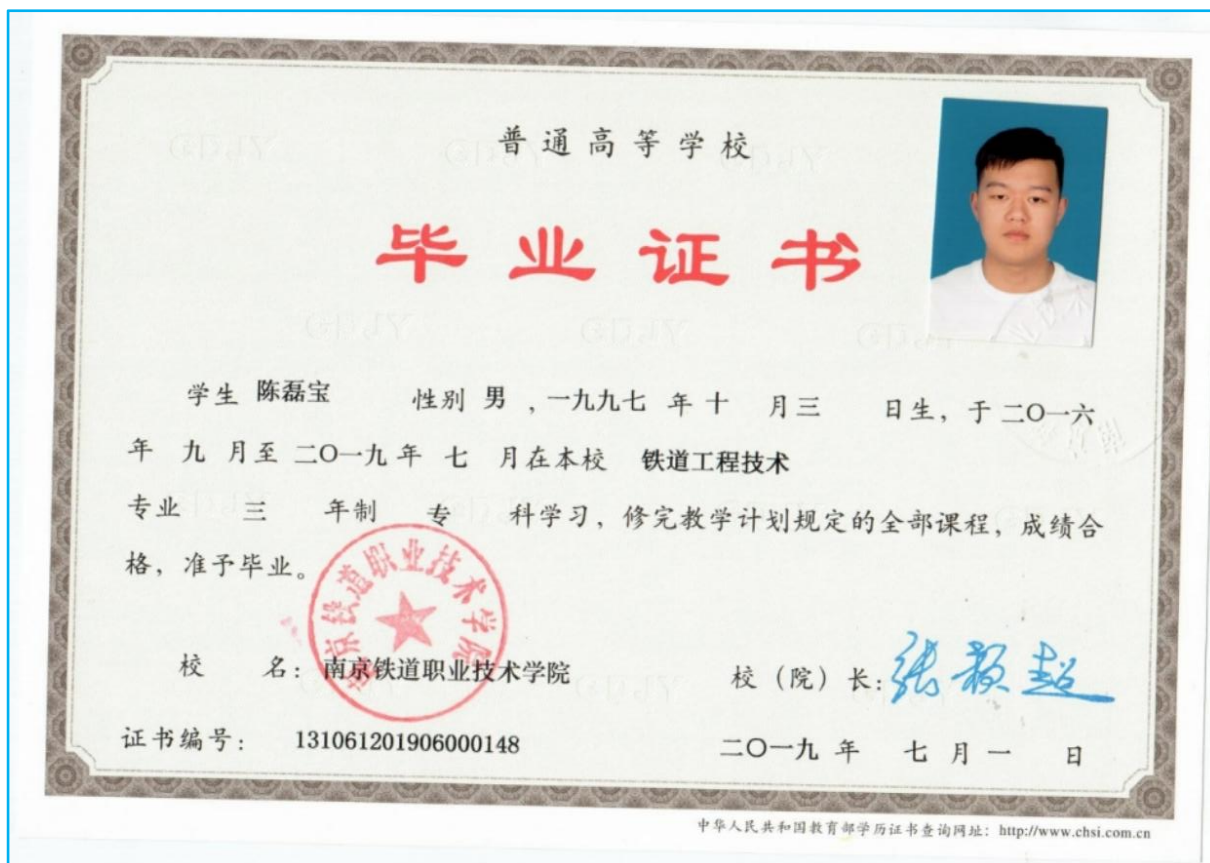 普通高等学校
毕业证书
学生 陈磊宝 性别 男 ,一九九七 年 十 月三 日生, 于 二〇一六
年 九 月至 二〇一九 年 七 月在本校 铁道工程技术
专业 三 年制 专 科学习, 修完教学计划规定的全部课程, 成绩合
格, 准予毕业。
南京铁道职业技术学院
校 名: 南京铁道职业技术学院
校(院)长: 张颖超
证书编号: 131061201906000148
二〇一九 年 七 月 一 日
中华人民共和国教育部学历证书查询网址: http://www.chsi.com.cn